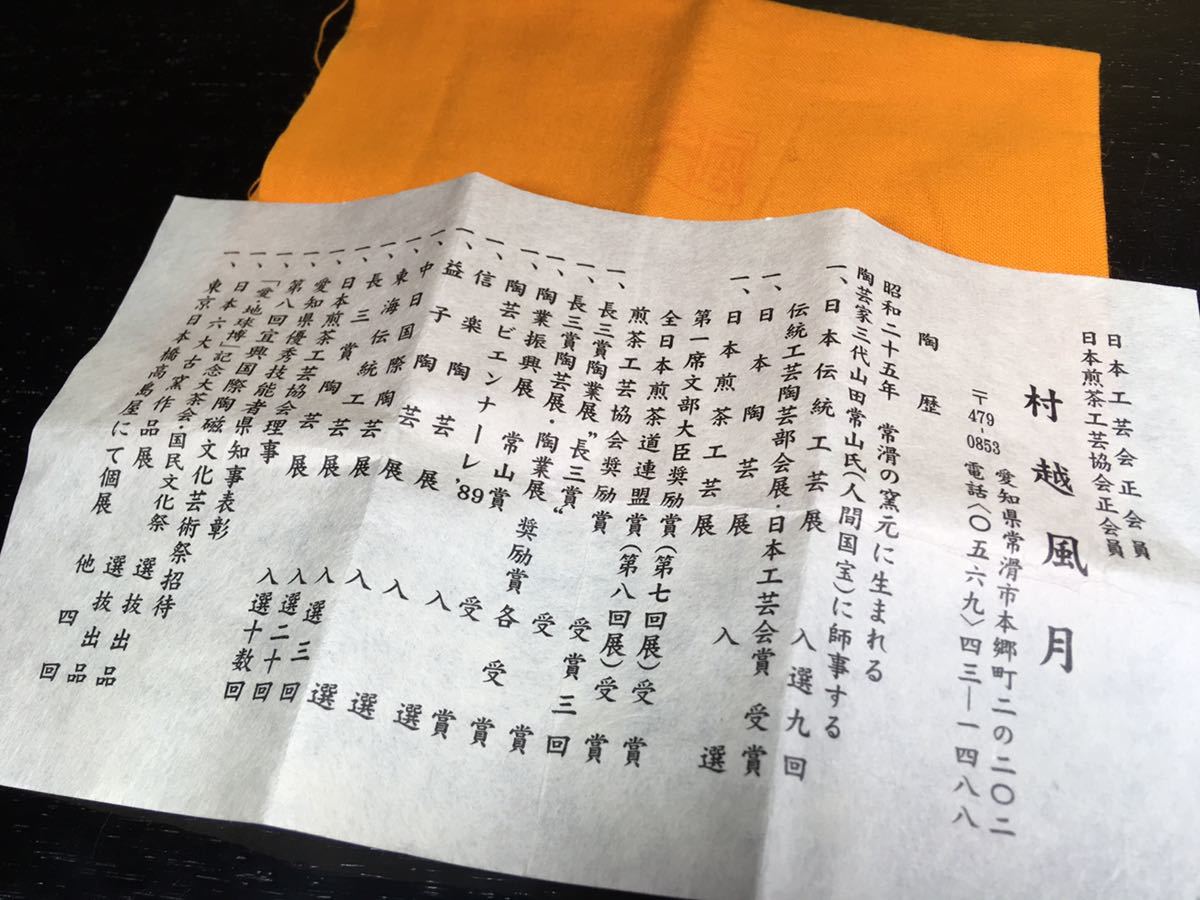 日本工芸会正会員
日本煎茶工芸協会正会員
村越風月
愛知県常滑市本郷町二の二〇二
〒479-0853 電話〈〇五六九〉四三―一四八八
陶歴
昭和二十五年 常滑の窯元に生まれる
陶芸家三代山田常山氏(人間国宝)に師事する
一、日本伝統工芸展 入選九回
伝統工芸陶芸部会展・日本工芸会賞 受賞
一、日本陶芸展 入選
一、日本煎茶工芸展
第一席文部大臣奨励賞(第七回展)受賞
全日本煎茶道連盟賞(第八回展)受賞
煎茶工芸協会奨励賞 受賞三回
一、長三賞陶業展"長三賞" 受賞
一、長三賞陶芸展・陶業展 奨励賞 各受賞
一、陶業振興展 常山賞 受賞
一、陶芸ビエンナーレ'89 入選
一、信楽陶芸展 入選
一、益子陶芸展 入選
一、中日国際陶芸展 入選三回
一、東海伝統工芸展 入選二十回
一、長三賞陶芸展 入選十数回
一、日本煎茶工芸協会理事
一、愛知県優秀技能者県知事表彰
一、第八回宜興国際陶磁文化芸術祭招待
一、「愛・地球博」記念大茶会・国民文化祭 選抜出品
一、日本六大古窯作品展 選抜出品
一、東京日本橋高島屋にて個展 他四回